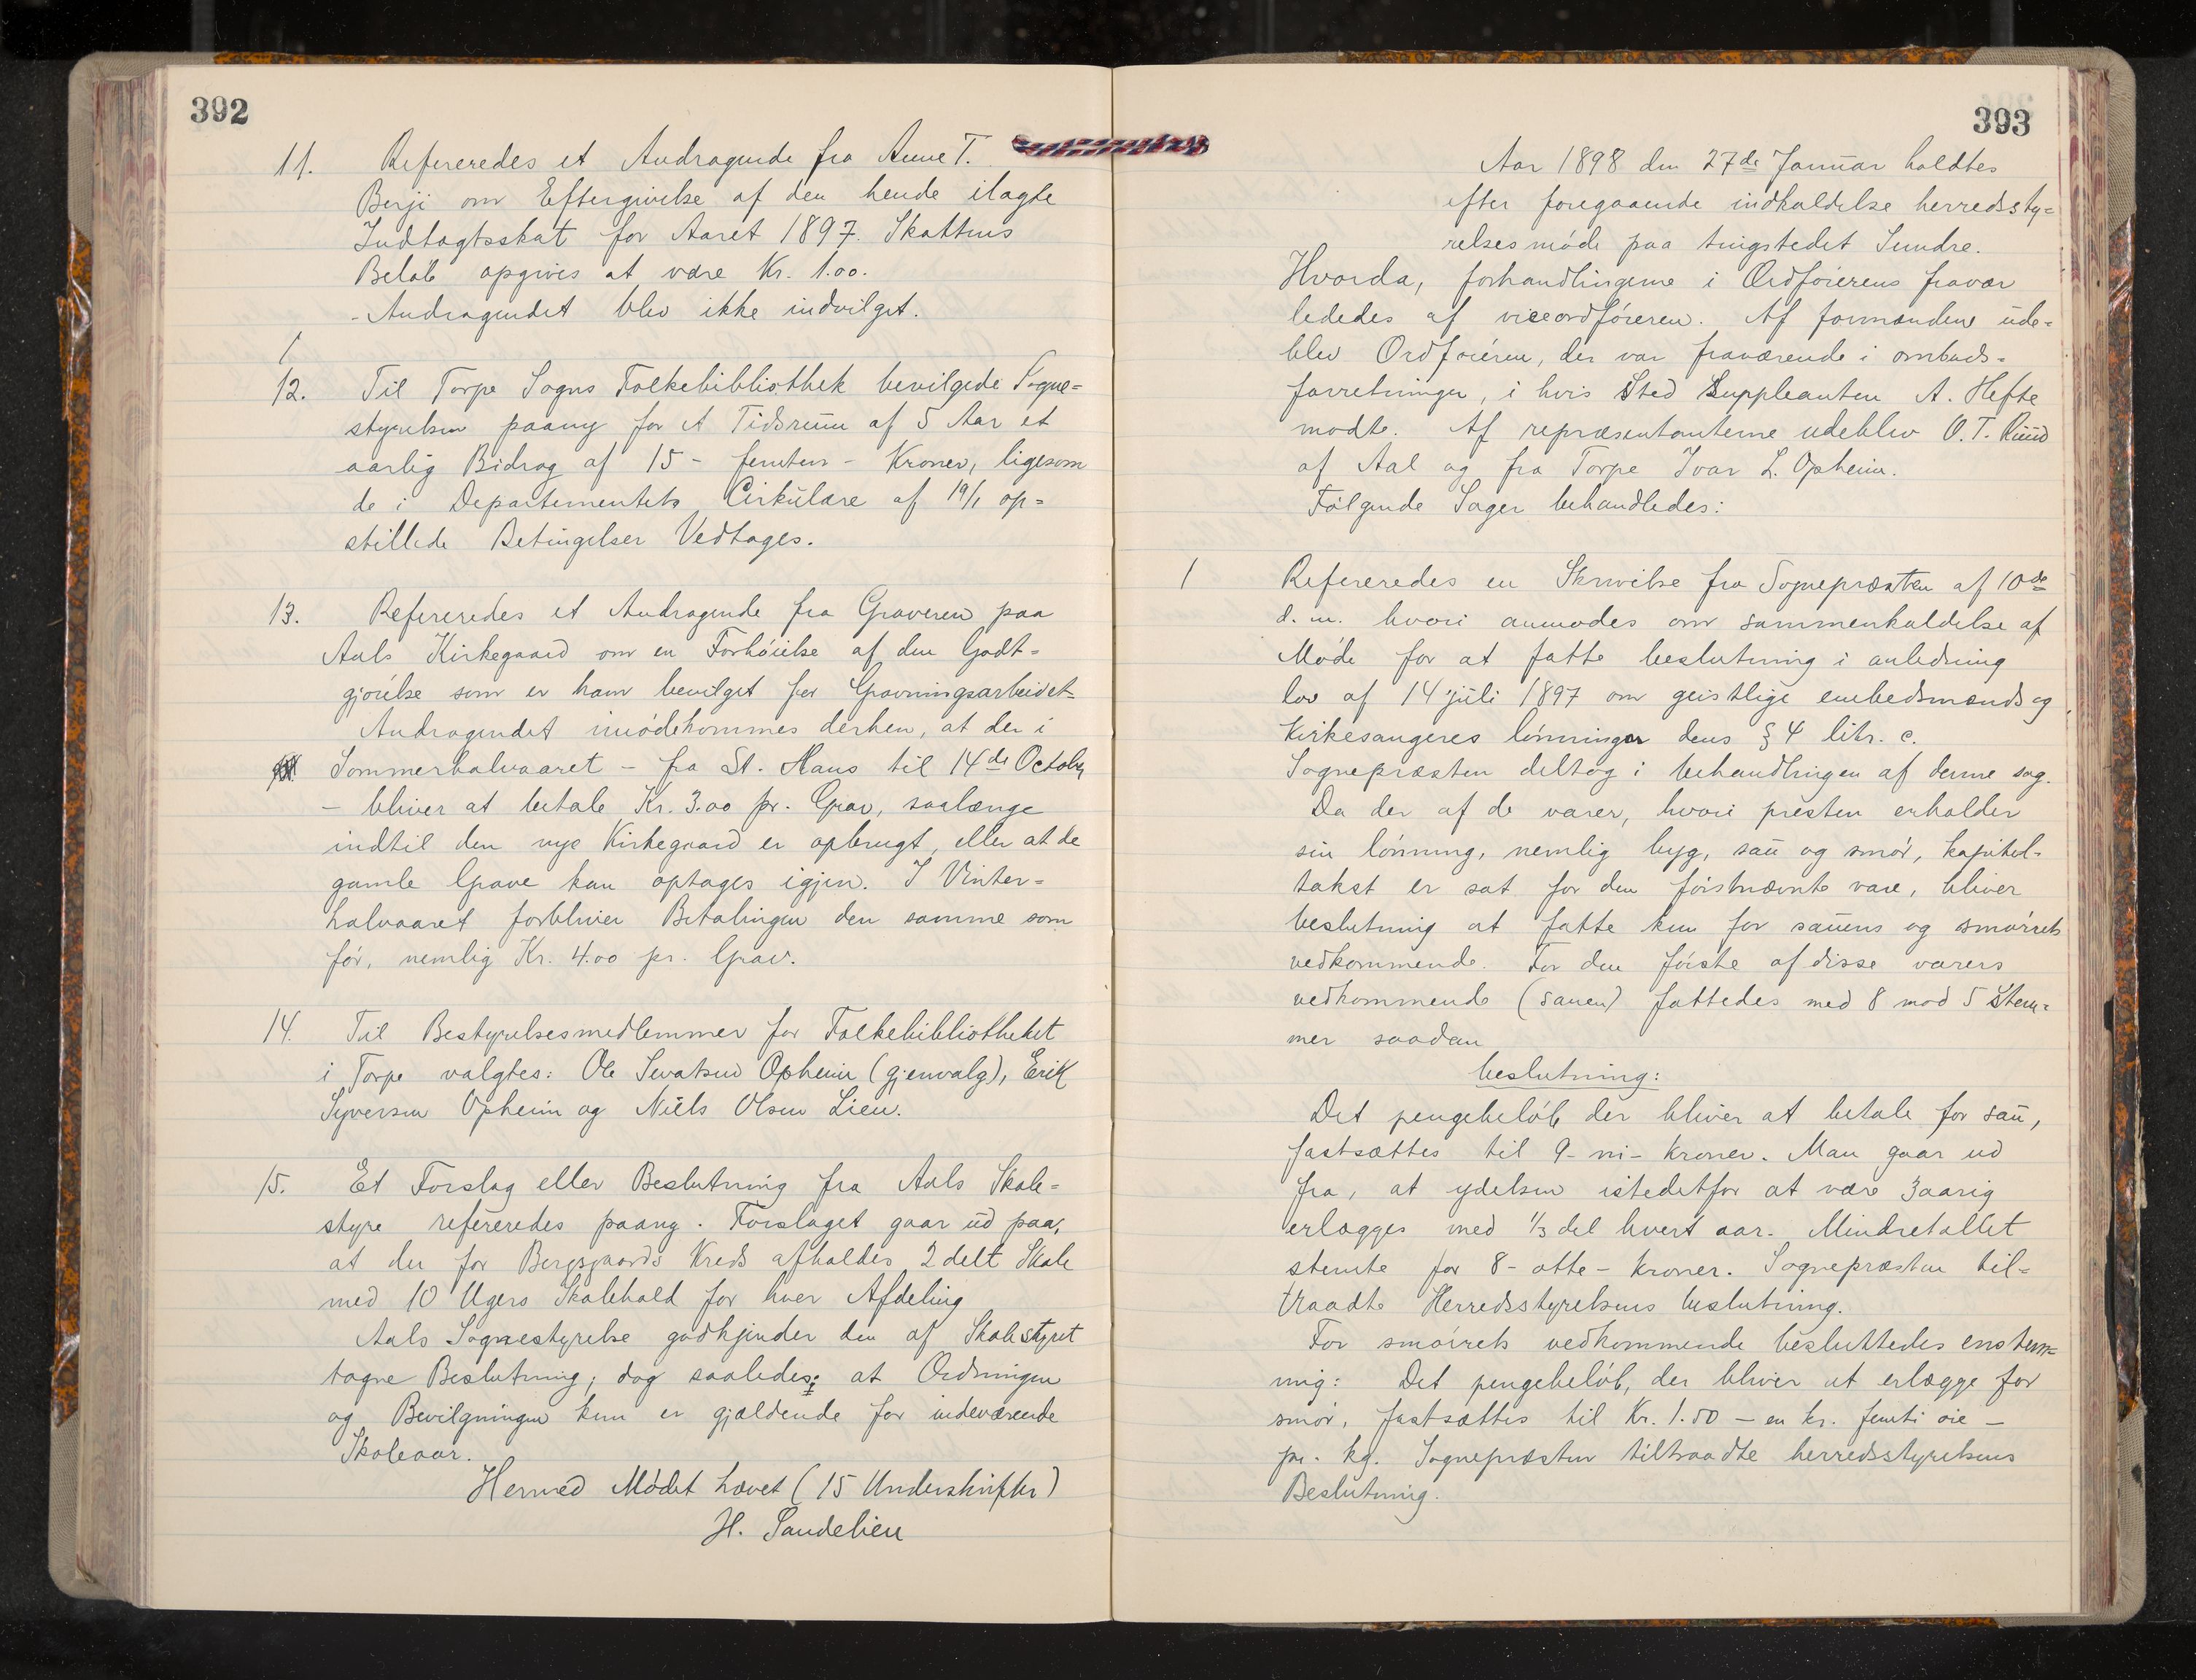 392
11. Refereredes et Andragende fra Anne T.
Berji om Eftergivelse af den hende ilagte
Indtægtsskat for Aaret 1897. Skattens
Beløb opgives at være Kr. 1.00.
- Andragendet blev ikke indvilget.
12. Til Torpe Sogns Folkebibliothek bevilgede Sogne=
styrelsen paany for et Tidsrum af 5 Aar et
aarlig Bidrag af 15 - femten - Kroner, ligesom
de i Departementets Cirkulære af 19/1 op=
stillede Betingelser Vedtages.
13. Refereredes et Andragende fra Graveren paa
Aals Kirkegaard om en Forhøielse af den Godt=
gjørelse som er ham bevilget for Gravningsarbeidet
Andragendet imødekommes derhen, at der i
Sommerhalvaaret - fra St. Hans til 14de October
- bliver at betale Kr. 3.00 pr. Grav, saalænge
indtil den nye Kirkegaard er opbrugt, eller at de
gamle Grave kan optages igjen. I Vinter=
halvaaret forbliver Betalingen den samme som
før, nemlig Kr. 4.00 pr. Grav.
14. Til Bestyrelsesmedlemmer for Folkebibliotheket
i Torpe valgtes: Ole Sevatsen Opheim (gjenvalg), Erik
Syversen Opheim og Niels Olsen Lien.
15. Et Forslag eller Beslutning fra Aals Skole=
styre refereredes paany. Forslaget gaar ud paa,
at der for Bergsgaards Kreds afholdes 2 delt Skole
med 10 Ugers Skolehold for hver Afdeling
Aals Sognestyrelse godkjender den af Skolestyret
tagne Beslutning; dog saaledes: at Ordningen
og Bevilgningen kun er gjældende for indeværende
Skoleaar.
Hermed Mødet hævet (15 Underskrifter)
H. Sandelien
393
Aar 1898 den 27de Januar holdtes
efter foregaaende indkaldelse herredssty=
relsesmøde paa tingstedet Sundre.
Hvorda, forhandlingerne i Ordførerens fravær
lededes af viceordføreren. Af formændene ude=
blev Ordføreren, der var fraværende i ombuds=
forretninger, i hvis Sted Suppleanten A. Hefte
mødte. Af repræsentanterne udeblev O. T. Ruud
af Aal og fra Torpe Ivar L. Opheim.
Følgende Sager behandledes:
1 Refereredes en Skrivelse fra Sognepræsten af 10de
d. m. hvori anmodes om sammenkaldelse af
Møde for at fatte beslutning i anledning
lov af 14 juli 1897 om geistlige embedsmænds og
Kirkesangeres lønninger dens § 4 litr. c.
Sognepræsten deltog i behandlingen af denne sag.
Da der af de varer, hvori presten erholder
sin lønning, nemlig byg, sau og smør, kapitel=
takst er sat for den førstnævnte vare, bliver
beslutning at fatte kun for sauens og smørrets
vedkommende. For den første af disse varers
vedkommende (sauen) fattedes med 8 mod 5 Stem=
mer saadan
beslutning:
Det pengebeløb der bliver at betale for sau,
fastsættes til 9 - ni - kroner. Man gaar ud
fra, at ydelsen istedetfor at være 3aarig
erlægges med 1/3 del hvert aar. Mindretallet
stemte for 8 - otte - kroner. Sognepræsten til=
traadte Herredsstyrelsens beslutning.
For smørrets vedkommende besluttedes enstem=
mig: Det pengebeløb, der bliver at erlægge for
smør, fastsættes til Kr. 1.50 - en kr. femti øre -
pr. kg. Sognepræsten tiltraadte herredsstyrelsens
Beslutning.